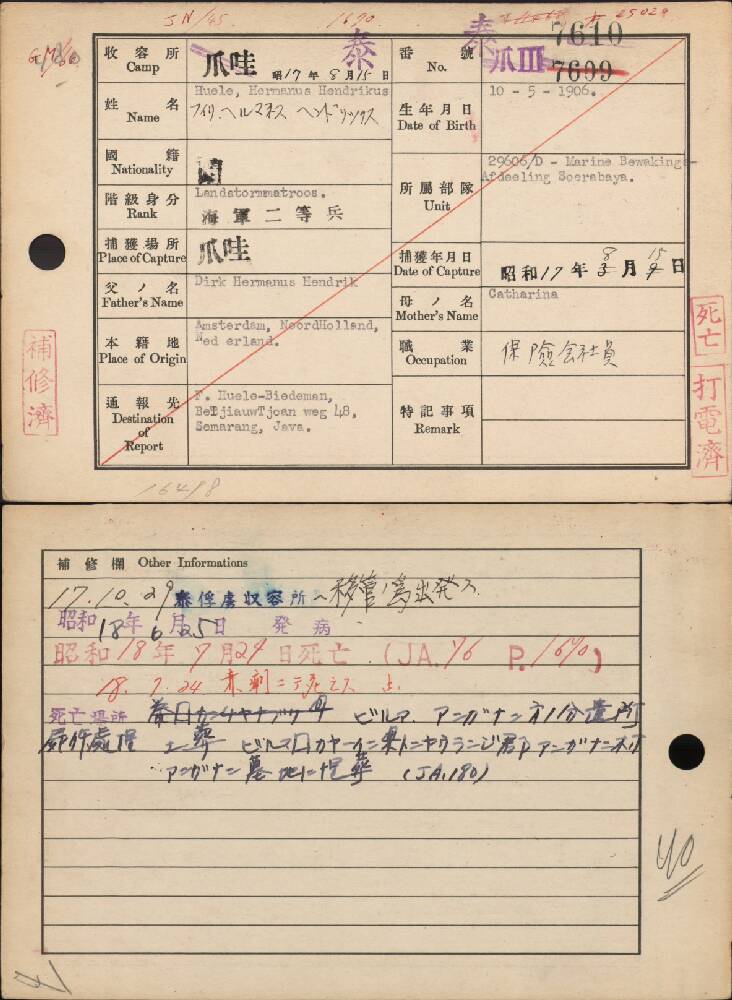 JN/45.
1690
25029
泰
泰
7610
收容所
Camp
爪哇
昭17年8月15日
番號
No.
爪III
7699
姓名
Name
Huele, Hermanus Hendrikus
フイリ・ヘルマネス ヘンドリックス
生年月日
Date of Birth
10 - 5 - 1906.
國籍
Nationality
所屬部隊
Unit
29606/D - Marine Bewakings-
Afdeeling Soerabaya.
階級身分
Rank
Landstormmatroos.
海軍二等兵
捕獲場所
Place of Capture
爪哇
捕獲年月日
Date of Capture
昭和17年8月15日
父ノ名
Father's Name
Dirk Hermanus Hendrik
母ノ名
Mother's Name
Catharina
本籍地
Place of Origin
Amsterdam, NoordHolland,
Ned erland.
職業
Occupation
保險会社員
通報先
Destination
of
Report
F. Huele-Biedeman,
BeTjiauwTjoan weg 48,
Semarang, Java.
特記事項
Remark
補修濟
死亡
打電濟
16498
補修欄 Other Informations
17.10.29 泰俘虜収容所ヘ移管ノ為出発ス
昭和18年6月25日 発病
昭和18年7月24日死亡 (JA.76 P.1690)
18.7.24 赤痢ニテ死亡ス
死亡場所 ビルマ.アンガナン
屍体處理 土葬
アンガナン墓地ニ埋葬 (JA.180)
40